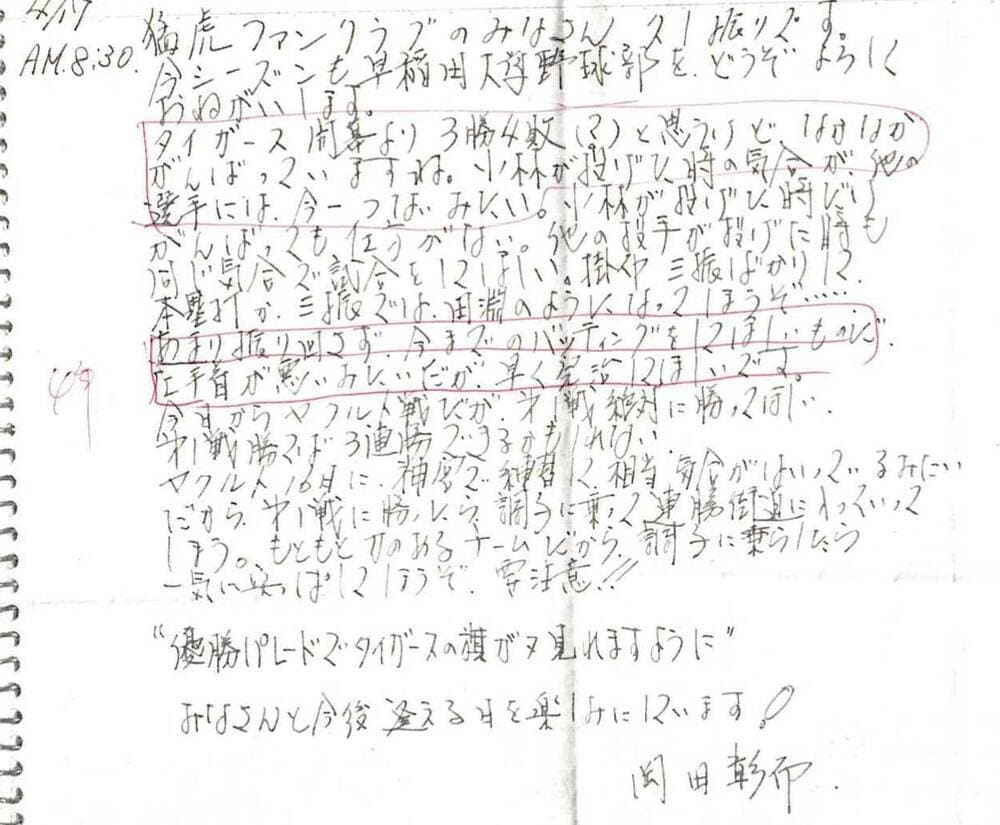 4/17
AM.8:30.
猛虎ファンクラブのみなさん久し振りです。
今シーズンも早稲田大学野球部を、どうぞよろしく
おねがいします。
タイガース開幕より3勝4敗(?)と思うけど、なかなか
がんばっていますね。小林が投げた時の気合が、他の
選手には、今一つないみたい。小林が投げた時だけ
がんばっても仕方がない。他の投手が投げた時も
同じ気合で試合をしてほしい。掛布三振ばかりして、
本塁打か、三振では、田淵のようになってしまうぞ……
あまり振り回さず、今までのバッティングをしてほしいものだ。
左手首が悪いみたいだが、早く完治してほしいです。
49
今日からヤクルト戦だが、第1戦絶対に勝ってほしい。
第1戦勝てば3連勝できるかもしれない。
ヤクルト16日に、神宮で練習して、相当気合がはいっているみたい
だから、第1戦に勝ったら、調子に乗って連勝街道に入っていって
しまう。もともと力のあるチームだから、調子に乗らしたら
一気に突っぱしてしまうぞ、要注意!!
"優勝パレードでタイガースの旗が又見れますように"
みなさんと今後逢える日を楽しみにしています!
岡田彰布